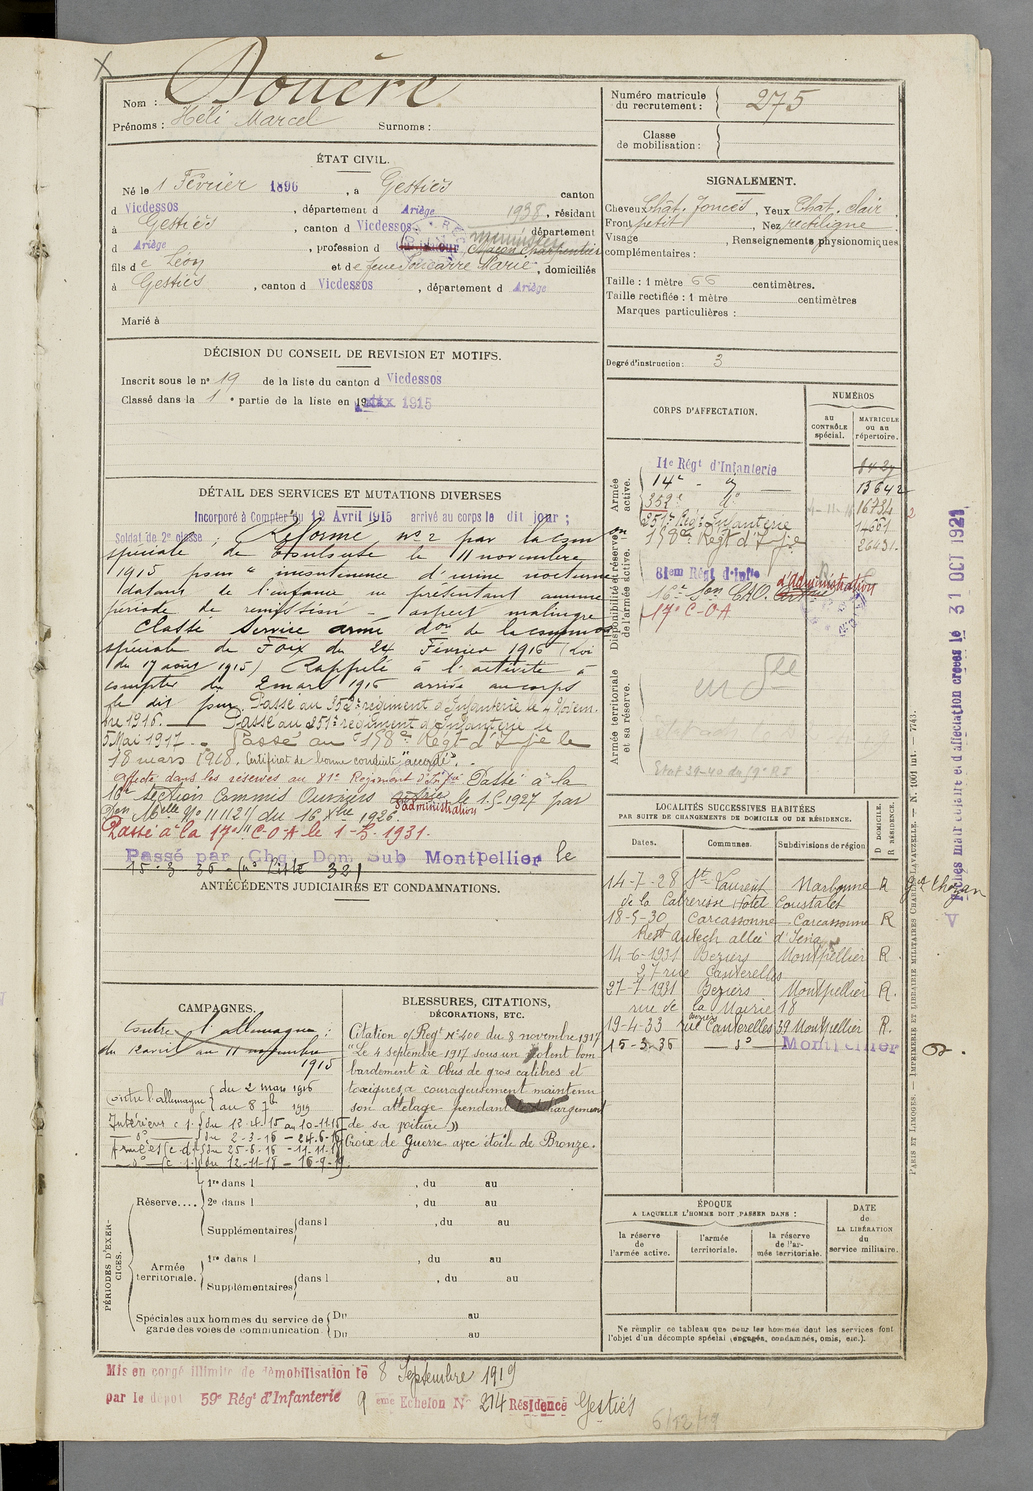 Nom : Douère
Prénoms : Héli Marcel Surnoms :
ÉTAT CIVIL.
Né le 1 Février 1896, à Gestiès canton
d Vicdessos, département d Ariège 1938, résidant
à Gestiès, canton d Vicdessos département
d Ariège, profession d menuisier
fils de Léon et de feue Marie, domiciliés
à Gestiès, canton d Vicdessos, département d Ariège
Marié à
DÉCISION DU CONSEIL DE REVISION ET MOTIFS.
Inscrit sous le n° 19 de la liste du canton d Vicdessos
Classé dans la 1e partie de la liste en 1915
DÉTAIL DES SERVICES ET MUTATIONS DIVERSES
Incorporé à Compter du 12 Avril 1915 arrivé au corps le dit jour ;
Soldat de 2e classe ; Réformé n° 2 par la Com
spéciale de Toulouse le 11 novembre
1915 pour " incontinence d'urine nocturne
datant de l'enfance ne présentant aucune
période de rémission - aspect malingre
Classé Service armé don de la common
spéciale de Foix du 24 Février 1916 (Loi
du 17 août 1915) Rappelé à l'activité à
compter du 2 mars 1916 arrivé au corps
le dit jour. Passé au 352e régiment d'Infanterie le 4 Novem-
bre 1916. — Passé au 351e régiment d'Infanterie le
5 Mai 1917. - Passé au 158e Régt d'Inf ie le
18 mars 1918. Certificat de bonne conduite "accordé".
Affecté dans les réserves au 81e Régiment d'Inf ie Passé à la
16e Section Commis Ouvriers d'administration le 1.5.1927 par
Don Mlle N° 11112/1 du 16 Xbre 1926.
Passé à la 17e C.O.A le 1-5-1931.
Passé par Chg. Dom Sub Montpellier le
15-3-36 - (n° Liste 321
ANTÉCÉDENTS JUDICIAIRES ET CONDAMNATIONS.
CAMPAGNES.
Contre l'allemagne :
du 12 avril au 11 novembre
1915
Contre l'allemagne du 2 mars 1916
au 8 7bre 1919
Intérieur c.1. du 12-4-15 au 10-11-15
do du 2-3-16 - 24-6-16
Armées c.d. du 25-6-16 - 11-11-18
do c.1. du 12-11-18 - 16-9-19
BLESSURES, CITATIONS,
DÉCORATIONS, ETC.
Citation o/ Regt N° 400 du 8 novembre 1917
"Le 4 septembre 1917 sous un violent bom
bardement à Obus de gros calibres et
toxiques a courageusement maintenu
son attelage pendant le chargement
de sa voiture"
Croix de Guerre avec étoile de Bronze.
PÉRIODES D'EXERCICES.
Réserve....
1re dans l , du au
2e dans l , du au
Supplémentaires dans l , du au
Armée territoriale.
1re dans l , du au
Supplémentaires dans l , du au
Spéciales aux hommes du service de garde des voies de communication
Du au
Du au
Mis en congé illimité de démobilisation le 8 Septembre 1919
par le dépôt 59e Régt d'Infanterie 9 ème Echelon N° 214 Résidence Gestiès
6/12/19
Numéro matricule
du recrutement : 275
Classe
de mobilisation :
SIGNALEMENT.
Cheveux Chât. foncés, Yeux Chat. clair
Front petit, Nez rectiligne
Visage , Renseignements physionomiques
complémentaires :
Taille : 1 mètre 66 centimètres.
Taille rectifiée : 1 mètre centimètres
Marques particulières :
Degré d'instruction : 3
CORPS D'AFFECTATION.
NUMÉROS
au CONTRÔLE spécial.
MATRICULE ou au répertoire.
Armée active.
11e Régt d'Infanterie
14e - do 13642
352e do 16734
351e Régt Infanterie
158e Régt d'Inf ie 26431
Disponibilité et réserve de l'armée active.
81em Régt d'inftie
16e Son C.A.O. d'Administration
17e C-O-A
Armée territoriale et sa réserve.
LOCALITÉS SUCCESSIVES HABITÉES
PAR SUITE DE CHANGEMENTS DE DOMICILE OU DE RÉSIDENCE.
Dates. Communes. Subdivisions de région D DOMICILE. R RÉSIDENCE.
14-7-28 St Laurent Narbonne R
de la Cabrerisse Hôtel Coustalet
18-5-30 Carcassonne Carcassonne R
Rest Autech allée d'Iéna
14-6-1931 Béziers Montpellier R.
27 rue Canterelles
27-7-1931 Béziers Montpellier R.
rue de la Mairie 18
19-4-33 Béziers rue Canterelles 39 Montpellier R.
15-3-36 — do — Montpellier
ÉPOQUE
A LAQUELLE L'HOMME DOIT PASSER DANS :
la réserve de l'armée active.
l'armée territoriale.
la réserve de l'armée territoriale.
DATE de LA LIBÉRATION du service militaire.
Ne remplir ce tableau que pour les hommes dont les services font
l'objet d'un décompte spécial (engagés, condamnés, omis, etc.).
PARIS ET LIMOGES. — IMPRIMERIE ET LIBRAIRIE MILITAIRES CHARLES-LAVAUZELLE. — N° 1061 int. 7743.
31 OCT 1921